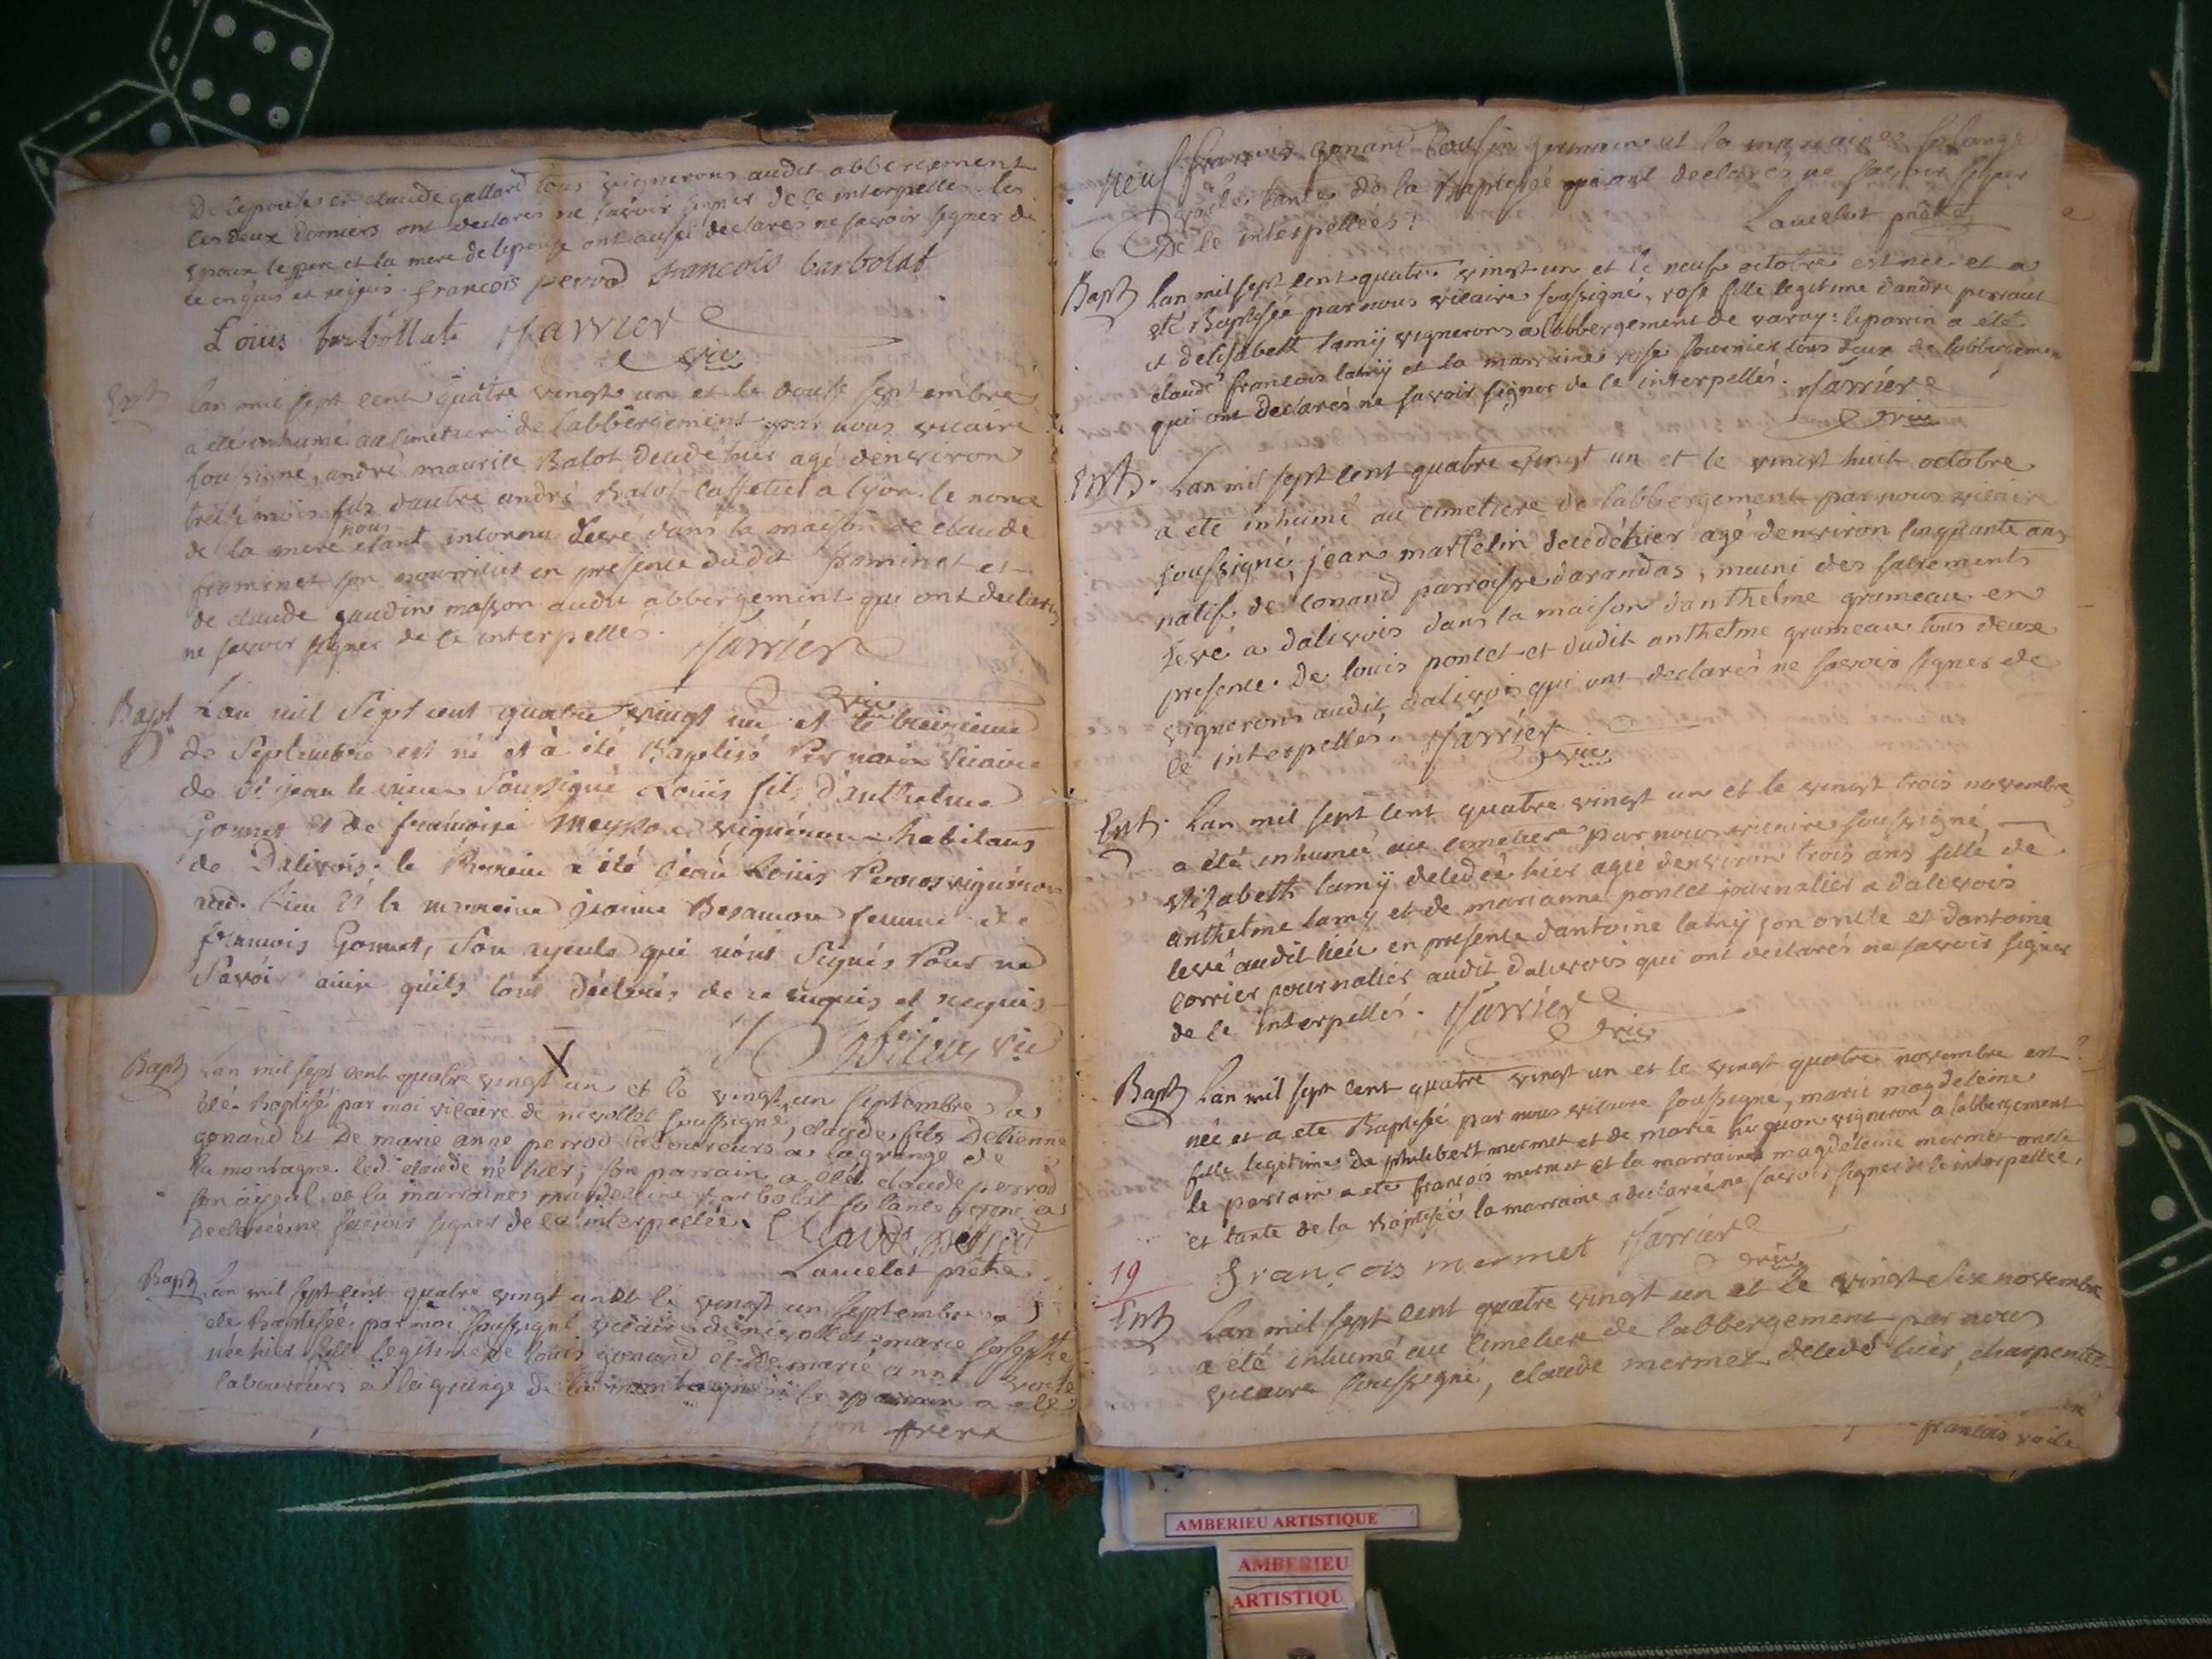 De lepouse et claude gallard tous vignerons audit abbergement
les deux derniers ont declarés ne savoir signer de ce interpellés. les
epoux le pere et la mere de lepouse ont aussi declarés ne savoir signer de
ce enquis et requis. francois perrod francois barbolat
Loüis barbollat Jarrier
vic
Ent
Lan mil sept cent quatre vingt un et le douse septembre
a été inhumé au cimetiere de labbergement par nous vicaire
soussigné, andré maurice Balot decedé hier agé denviron
treise mois fils dautre andré Balot caffetier a lyon. le nom
de la mere nous etant inconnu Levé dans la maison de claude
frominet son nourricier en presence dudit frominet et
de claude gaudin masson audit abbergement qui ont declarés
ne savoir signer de ce interpellés. Jarrier
vic
Bapt
Lan mil Sept cent quatre vingt un et le treizieme
de Septembre est né et à été Baptisé Par nous Vicaire
de St jean le vieux Soussigné Loüis fils d'anthelme
Gonnet & de françoise vignerons habitans
de Dalivois. le Parrein a été Jean Loüis vigneron
aud. lieu & la marreine jeanne femme de
francois Gonnet, Son ayeule qui n'ont Signés Pour ne
Savoir ainsi qu'ils l'ont déclarés de ce enquis et requis
vic
X
Bapt
Lan mil sept cent quatre vingt un et le vingt un septembre a
été Baptisé par moi vicaire de nivollet soussigné, claude, fils Detienne
gonand et De marie anne perrod laboureurs a lagrange de
la montagne. led. claude né hier; son parrain a été claude perrod
son aïyeul, et la marraine magdeleine Barbolat sa tante qui a
declarée ne savoir signer de ce interpellée. Claude perrod
Lancelot prêtre
Bapt
Lan mil sept cent quatre vingt un et le vingt un septembre a
eté Baptisée par moi soussigné vicaire de nivollet marie josephte
née hier fille legitime de louis gonand et de marie anne voile
laboureurs a la grange de la montagne: le parrain a été
son frere
neuf francois gonand cousin germain et la marraine solange
voile tante de la Baptisée qui ont declarés ne savoir signer
De ce interpellées!
Lancelot prêtre
Bapt
Lan mil sept cent quatre vingt un et le neuf octobre est née et a
eté Baptisée par nous vicaire soussigné, rose fille legitime dandre perraut
et delisabeth lamÿ vignerons a labbergement de varay: le parrin a été
claude francois lamÿ et la marraine rose fournier tous deux de labbergement
qui ont declarés ne savoir signer de ce interpellés. Jarrier
vic
Ent.
Lan mil sept cent quatre vingt un et le vingt huit octobre
a eté inhumé au cimetiere de labbergement par nous vicaire
soussigné, jean martelin decedé hier agé denviron cinquante ans
natif de conand parroisse darandas, muni des sacrements
Levé a dalivois dans la maison danthelme grumeau en
presence De louis poncet et dudit anthelme grumeau tous deux
vignerons audit dalivois qui ont declarés ne savoir signer de
ce interpellés. Jarrier
vic
Ent.
Lan mil sept cent quatre vingt un et le vingt trois novembre
a été inhumée au cimetiere par nous vicaire soussigné,
Elizabeth lamÿ decedée hier agée denviron trois ans fille de
anthelme lamÿ et de marianne poncet journalier a dalivois
levé audit lieu en presence dantoine lamÿ son oncle et dantoine
corrier journalier audit dalivois qui ont declarés ne savoir signer
de ce interpellés. Jarrier
vic
Bapt
Lan mil sept cent quatre vingt un et le vingt quatre novembre est
née et a eté Baptisée par nous vicaire soussigné, marie magdeleine
fille legitime de philibert mermet et de marie huguon vigneron a labbergement
le parrain a eté francois mermet et la marraine magdeleine mermet oncle
et tante de la Baptisée la marraine a declarée ne savoir signer de ce interpellée.
François mermet Jarrier
vic
19
Ent
Lan mil sept cent quatre vingt un et le vingt six novembre
a été inhumé au cimetiere de labbergement par nous
vicaire soussigné, claude mermet decedé hier, charpentier
francois voile
AMBERIEU ARTISTIQUE
AMBERIEU
ARTISTIQU